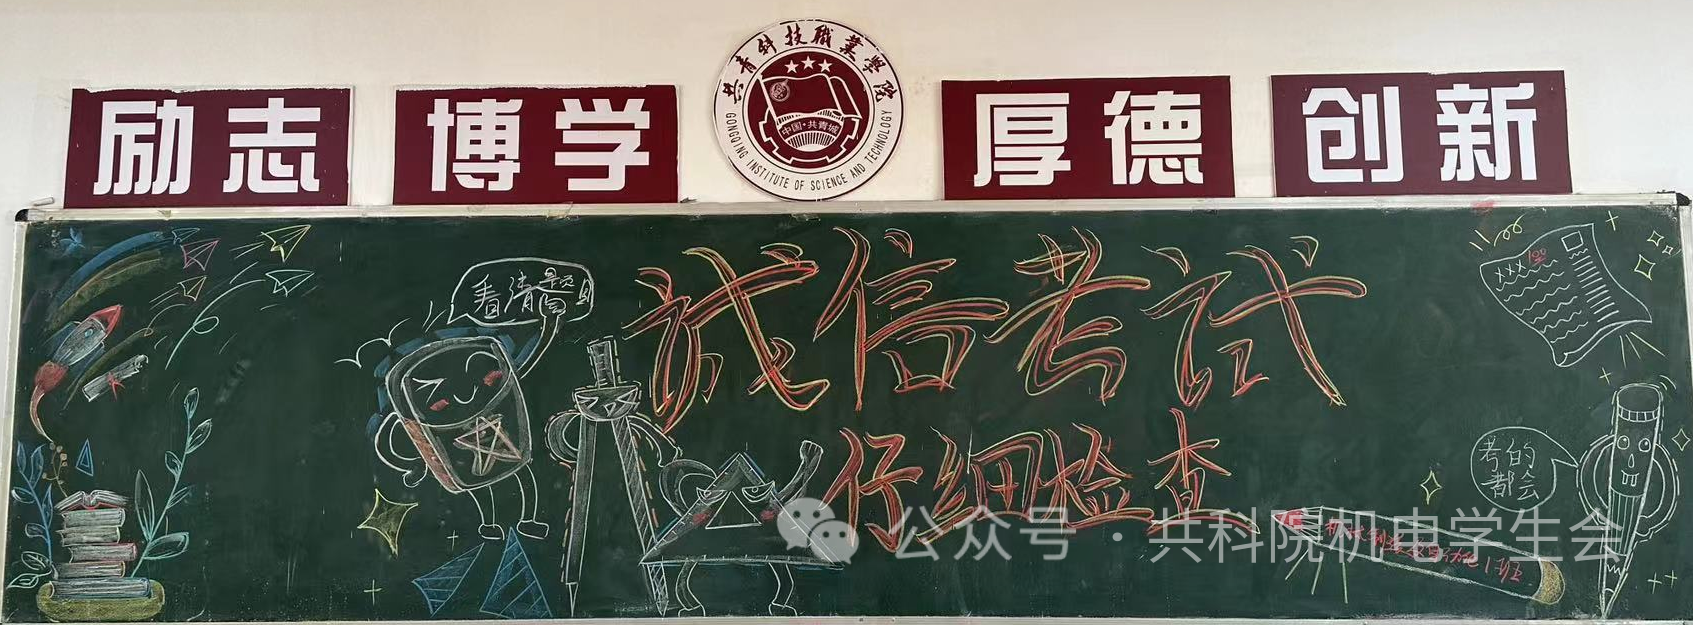 励志
博学
共青科技職業學院
中国·共青城
GONGQING INSTITUTE OF SCIENCE AND TECHNOLOGY
厚德
创新
看清题目
诚信考试
仔细检查
100
考的
都会
公众号·共科院机电学生会